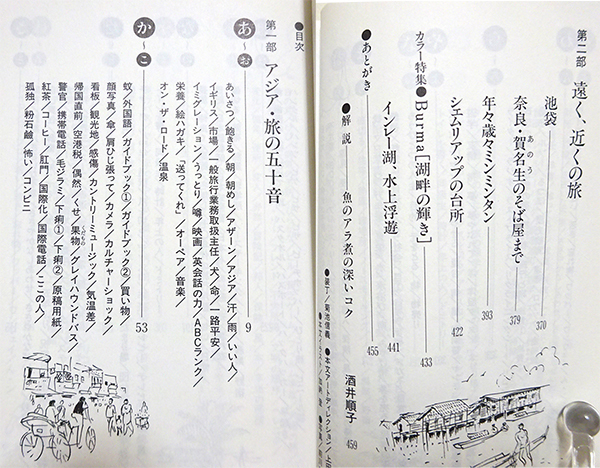 ●目次
第一部 アジア・旅の五十音
あ〜お
あいさつ／飽きる／朝、朝めし／アザーン／アジア／汗／雨／いい人／
イギリス／市場／一般旅行業務取扱主任／犬／命／一路平安／
イミグレーション／うっとり／噂／映画／英会話の力／ABCランク／
栄養／絵ハガキ／「送ってくれ」／オーペア／音楽／
オン・ザ・ロード／温泉
9
か〜こ
蚊／外国語／ガイドブック①／ガイドブック②／買い物／
顔写真／傘／肩ひじ張って／カメラ／カルチャーショック／
看板／観光地／感傷／カントリーミュージック／気温差／
帰国直前／空港税／偶然／くせ／果物／グレイハウンドバス／
警官／携帯電話／毛ジラミ／下痢①／下痢②／原稿用紙／
紅茶／コーヒー／肛門／国際化／国際電話／ここの人／
孤独／粉石鹼／怖い／コンビニ
53
第二部 遠く、近くの旅
池袋 370
奈良・賀名生のそば屋まで 379
あのう
年々歳々ミンミンタン 393
シェムリアップの台所 422
カラー特集●Burma［湖畔の輝き］ 433
インレー湖、水上浮遊 441
●あとがき 455
●解説――魚のアラ煮の深いコク 酒井順子 459
●装丁／菊池信義
●本文アートディレクション／上田
●本文イラスト／
●写真／